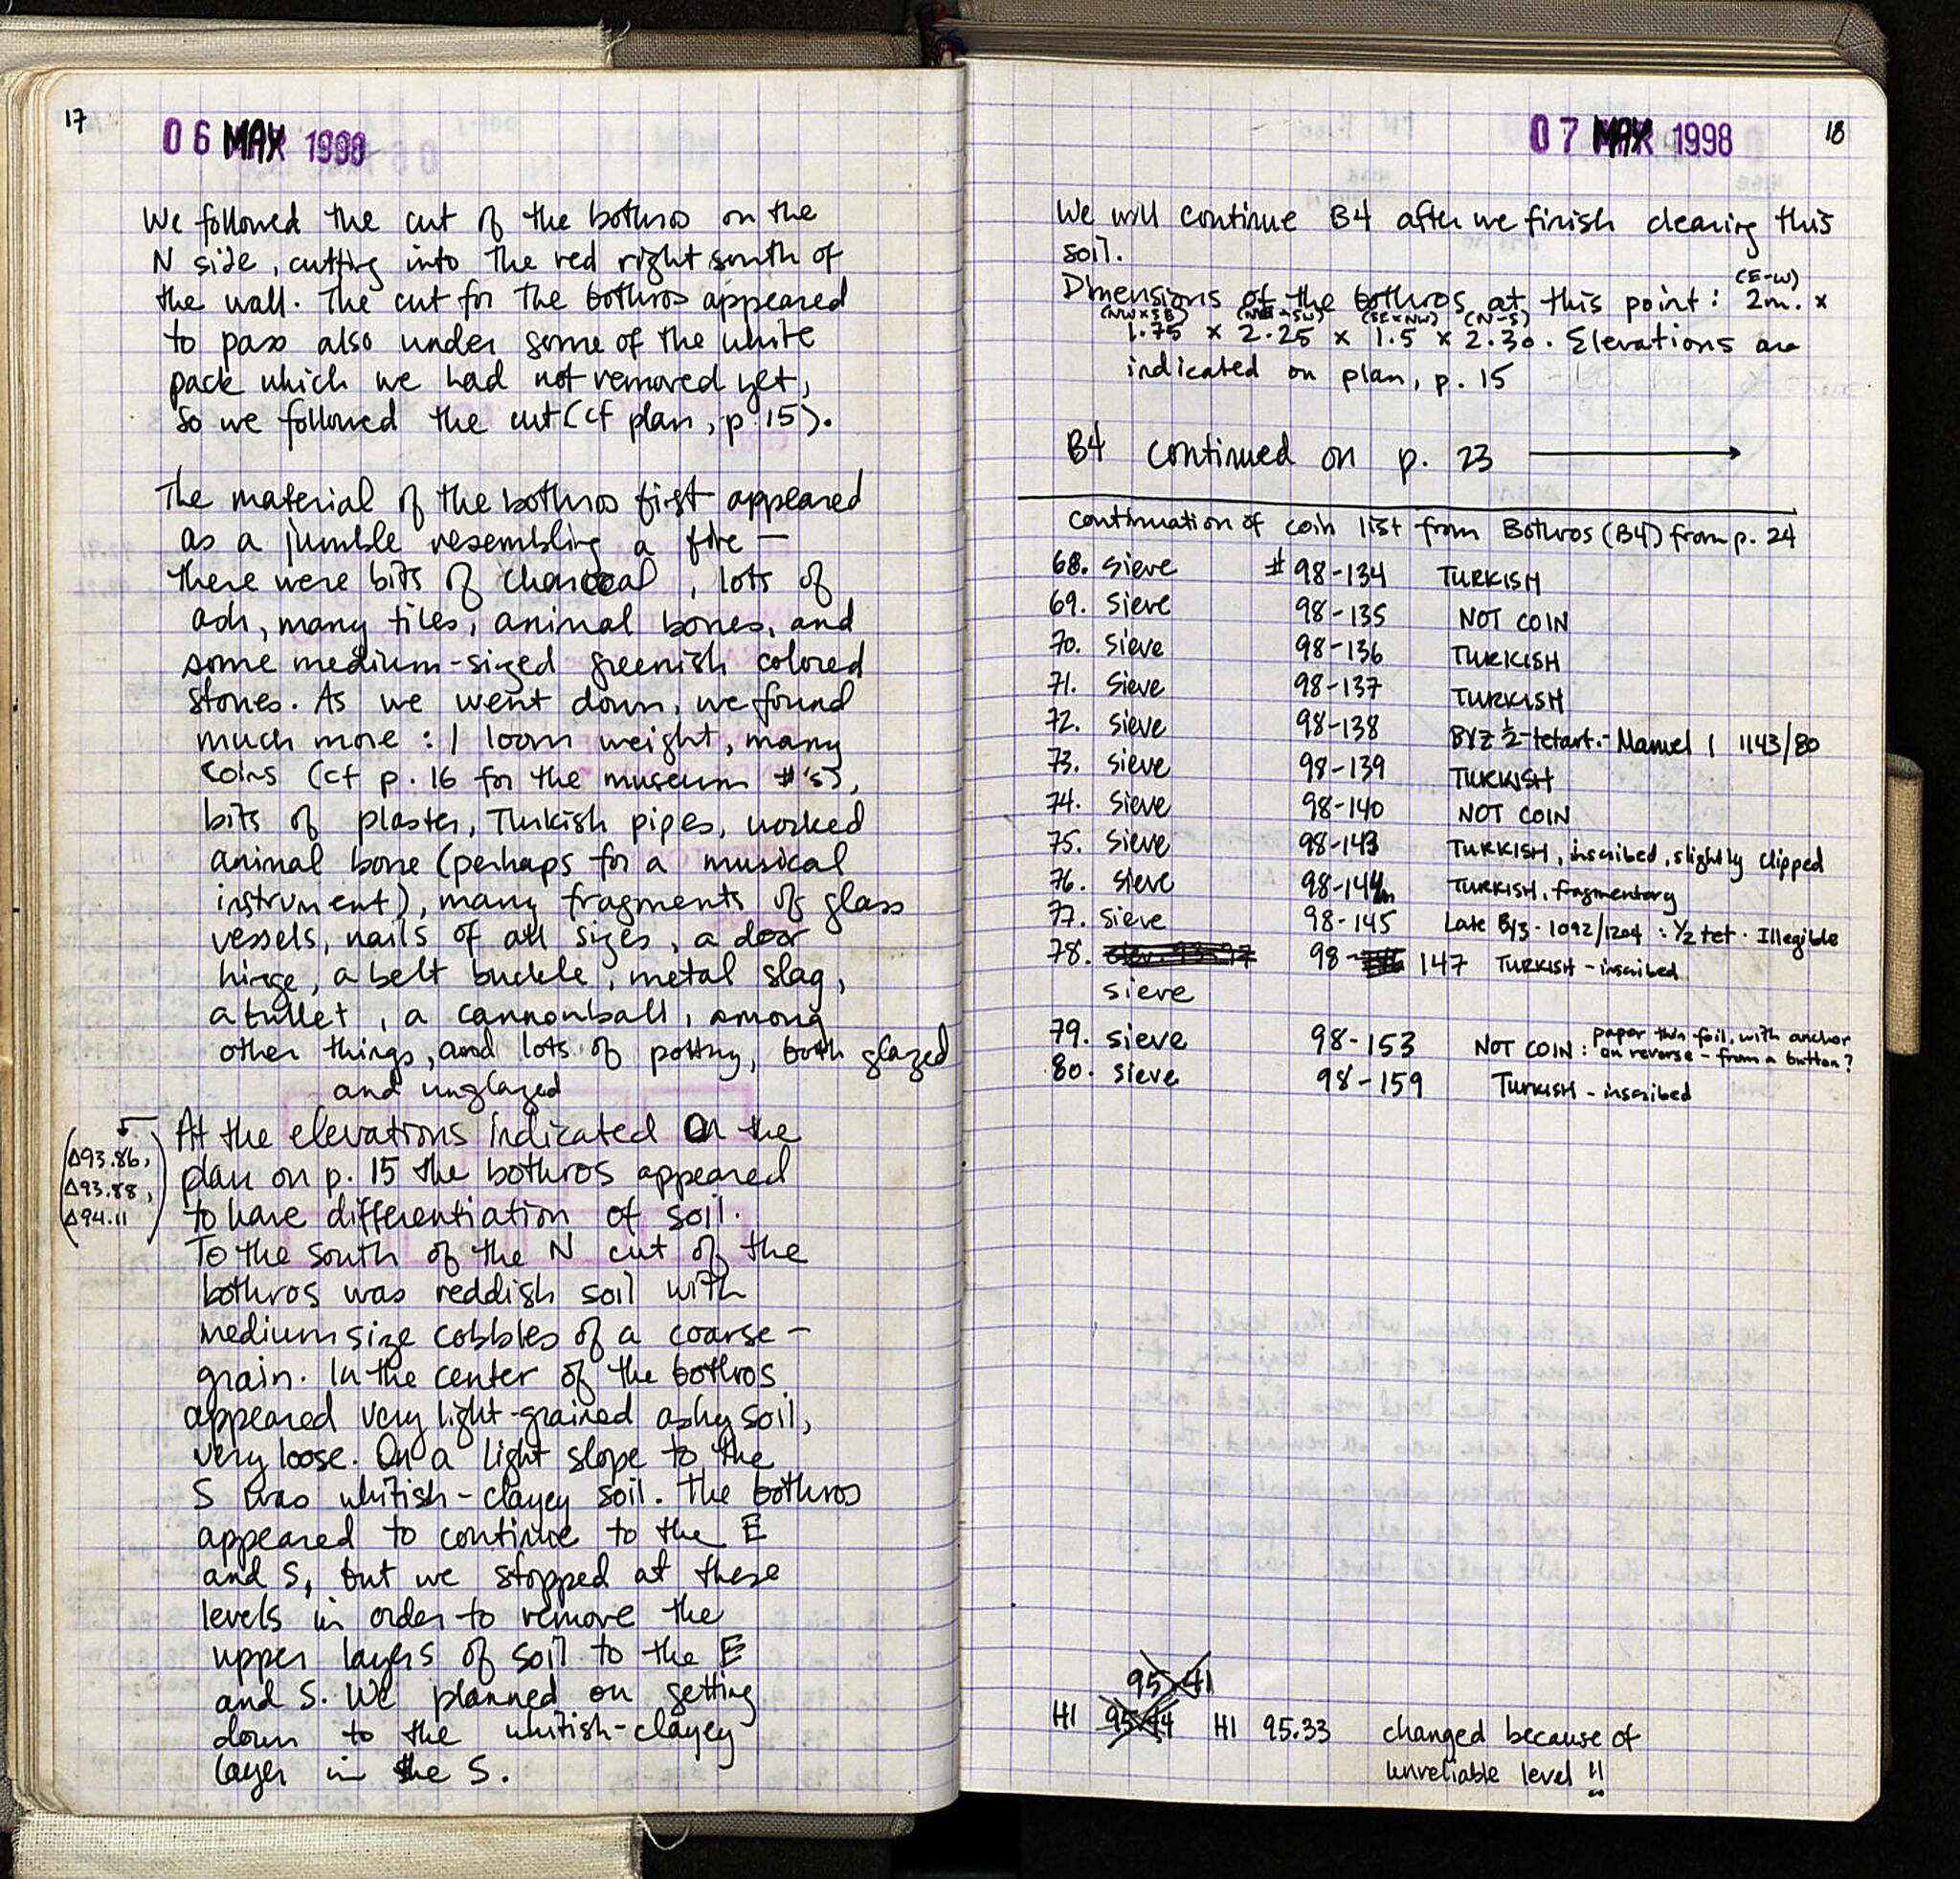 17
06 MAY 1998
We followed the cut of the bothros on the
N side, cutting into the red right south of
the wall. The cut for the bothros appeared
to pass also under some of the white
pack which we had not removed yet,
so we followed the cut (cf plan, p. 15).
The material of the bothros first appeared
as a jumble resembling a fire –
there were bits of charcoal, lots of
ash, many tiles, animal bones, and
some medium-sized greenish colored
stones. As we went down, we found
much more : 1 loom weight, many
coins (cf p. 16 for the museum #'s),
bits of plaster, Turkish pipes, worked
animal bone (perhaps for a musical
instrument), many fragments of glass
vessels, nails of all sizes, a door
hinge, a belt buckle, metal slag,
a bullet, a cannonball, among
other things, and lots of pottery, both glazed
and unglazed
At the elevations indicated on the
(Δ93.86,
plan on p. 15 the bothros appeared
Δ93.88,
to have differentiation of soil.
Δ94.11)
To the south of the N cut of the
bothros was reddish soil with
medium size cobbles of a coarse –
grain. In the center of the bothros
appeared very light-grained ashy soil,
very loose. On a light slope to the
S was whitish-clayey soil. The bothros
appeared to continue to the E
and S, but we stopped at these
levels in order to remove the
upper layers of soil to the E
and S. We planned on getting
down to the whitish-clayey
layer in the S.
07 MAY 1998
18
We will continue B4 after we finish clearing this
soil.
(E-W)
Dimensions of the bothros at this point : 2m. x
(NW x SE) (NE-SW) (SE x NW) (N-S)
1.75 x 2.25 x 1.5 x 2.30. Elevations are
indicated on plan, p. 15
B4 continued on p. 23 →
continuation of coin list from Bothros (B4) from p. 24
68. sieve # 98-134 TURKISH
69. sieve 98-135 NOT COIN
70. sieve 98-136 TURKISH
71. sieve 98-137 TURKISH
72. sieve 98-138 BYZ ½-tetart.- Manuel I 1143/80
73. sieve 98-139 TURKISH
74. sieve 98-140 NOT COIN
75. sieve 98-143 TURKISH, inscribed, slightly clipped
76. sieve 98-144 TURKISH, fragmentary
77. sieve 98-145 Late Byz. 1092/1204 : ½ tet. Illegible
78. 98- 147 TURKISH - inscribed
sieve
79. sieve 98-153 NOT COIN : paper thin foil, with anchor
on reverse - from a button?
80. sieve 98-159 Turkish - inscribed
95.41
HI 95.44 HI 95.33 changed because of
unreliable level !!